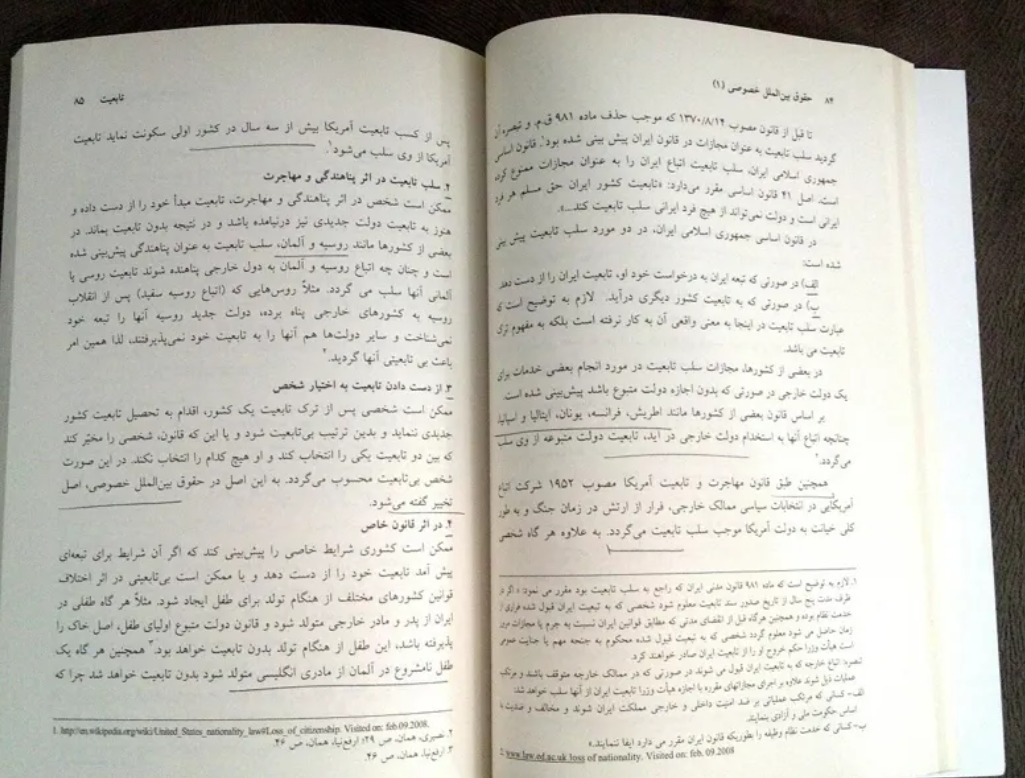 ۸۴ حقوق بین‌الملل خصوصی (۱)
تا قبل از قانون مصوب ۱۳۷۰/۸/۱۴ که موجب حذف ماده ۹۸۱ ق.م. و تبصره آن
گردید سلب تابعیت به عنوان مجازات در قانون ایران پیش بینی شده بود۱. قانون اساسی
جمهوری اسلامی ایران، سلب تابعیت اتباع ایران را به عنوان مجازات ممنوع کرده
است. اصل ۴۱ قانون اساسی مقرر می‌دارد: «تابعیت کشور ایران حق مسلم هر فرد
ایرانی است و دولت نمی‌تواند از هیچ فرد ایرانی سلب تابعیت کند...».
در قانون اساسی جمهوری اسلامی ایران، در دو مورد سلب تابعیت پیش بینی
شده است:
الف) در صورتی که تبعه ایران به درخواست خود او، تابعیت ایران را از دست دهد.
ب) در صورتی که به تابعیت کشور دیگری درآید. لازم به توضیح است که
عبارت سلب تابعیت در اینجا به معنی واقعی آن به کار نرفته است بلکه به مفهوم ترک
تابعیت می باشد.
در بعضی از کشورها، مجازات سلب تابعیت در مورد انجام بعضی خدمات برای
یک دولت خارجی در صورتی که بدون اجازه دولت متبوع باشد پیش‌بینی شده است.
بر اساس قانون بعضی از کشورها مانند اطریش، فرانسه، یونان، ایتالیا و اسپانیا،
چنانچه اتباع آنها به استخدام دولت خارجی در آید، تابعیت دولت متبوعه از وی سلب
می‌گردد.۲
همچنین طبق قانون مهاجرت و تابعیت آمریکا مصوب ۱۹۵۲ شرکت اتباع
آمریکایی در انتخابات سیاسی ممالک خارجی، فرار از ارتش در زمان جنگ و به طور
کلی خیانت به دولت آمریکا موجب سلب تابعیت می‌گردد. به علاوه هر گاه شخصی
۱. لازم به توضیح است که ماده ۹۸۱ قانون مدنی ایران که راجع به سلب تابعیت بود مقرر می نمود: «اگر در
ظرف مدت پنج سال از تاریخ صدور سند تابعیت معلوم شود شخصی که به تبعیت ایران قبول شده فراری از
خدمت نظام بوده و همچنین هرگاه قبل از انقضای مدتی که مطابق قوانین ایران نسبت به جرم یا مجازات مرور
زمان حاصل می شود معلوم گردد شخصی که به تبعیت قبول شده محکوم به جنحه مهم یا جنایت عمومی
است هیأت وزرا حکم خروج او را از تابعیت ایران صادر خواهند کرد.
تبصره: اتباع خارجه که به تابعیت ایران قبول می شوند در صورتی که در ممالک خارجه متوقف باشند و مرتکب
عملیات ذیل شوند علاوه بر اجرای مجازاتهای مقرره با اجازه هیأت وزرا تابعیت ایران از آنها سلب خواهد شد:
الف- کسانی که مرتکب عملیاتی بر ضد امنیت داخلی و خارجی مملکت ایران شوند و مخالف و ضدیت با
اساس حکومت ملی و آزادی بنمایند.
ب- کسانی که خدمت نظام وظیفه را بطوریکه قانون ایران مقرر می دارد ایفا ننمایند.»
2. www.law.ed.ac.uk loss of nationality. Visited on: feb. 09.2008
تابعیت ۸۵
پس از کسب تابعیت آمریکا بیش از سه سال در کشور اولی سکونت نماید تابعیت
آمریکا از وی سلب می‌شود۱.
۲. سلب تابعیت در اثر پناهندگی و مهاجرت
ممکن است شخص در اثر پناهندگی و مهاجرت، تابعیت مبدأ خود را از دست داده و
هنوز به تابعیت دولت جدیدی نیز درنیامده باشد و در نتیجه بدون تابعیت بماند. در
بعضی از کشورها مانند روسیه و آلمان، سلب تابعیت به عنوان پناهندگی پیش‌بینی شده
است و چنان چه اتباع روسیه و آلمان به دول خارجی پناهنده شوند تابعیت روسی یا
آلمانی آنها سلب می گردد. مثلاً روس‌هایی که (اتباع روسیه سفید) پس از انقلاب
روسیه به کشورهای خارجی پناه برده، دولت جدید روسیه آنها را تبعه خود
نمی‌شناخت و سایر دولت‌ها هم آنها را به تابعیت خود نمی‌پذیرفتند، لذا همین امر
باعث بی تابعیتی آنها گردید.۲
۳. از دست دادن تابعیت به اختیار شخص
ممکن است شخصی پس از ترک تابعیت یک کشور، اقدام به تحصیل تابعیت کشور
جدیدی ننماید و بدین ترتیب بی‌تابعیت شود و یا این که قانون، شخصی را مخیّر کند
که بین دو تابعیت یکی را انتخاب کند و او هیچ کدام را انتخاب نکند. در این صورت
شخص بی‌تابعیت محسوب می‌گردد. به این اصل در حقوق بین‌الملل خصوصی، اصل
تخییر گفته می‌شود.
۴. در اثر قانون خاص
ممکن است کشوری شرایط خاصی را پیش‌بینی کند که اگر آن شرایط برای تبعه‌ای
پیش آمد تابعیت خود را از دست دهد و یا ممکن است بی‌تابعیتی در اثر اختلاف
قوانین کشورهای مختلف از هنگام تولد برای طفل ایجاد شود. مثلاً هر گاه طفلی در
ایران از پدر و مادر خارجی متولد شود و قانون دولت متبوع اولیای طفل، اصل خاک را
پذیرفته باشد، این طفل از هنگام تولد بدون تابعیت خواهد بود.۳ همچنین هر گاه یک
طفل نامشروع در آلمان از مادری انگلیسی متولد شود بدون تابعیت خواهد شد چرا که
1. http://en.wikipedia.org/wiki/United_States_nationality_law#Loss_of_citizenship. Visited on: feb.09.2008.
۲. نصیری، همان، ص ۲۹؛ ارفع‌نیا، همان، ص ۴۶.
۳. ارفع‌نیا، همان، ص ۴۶.